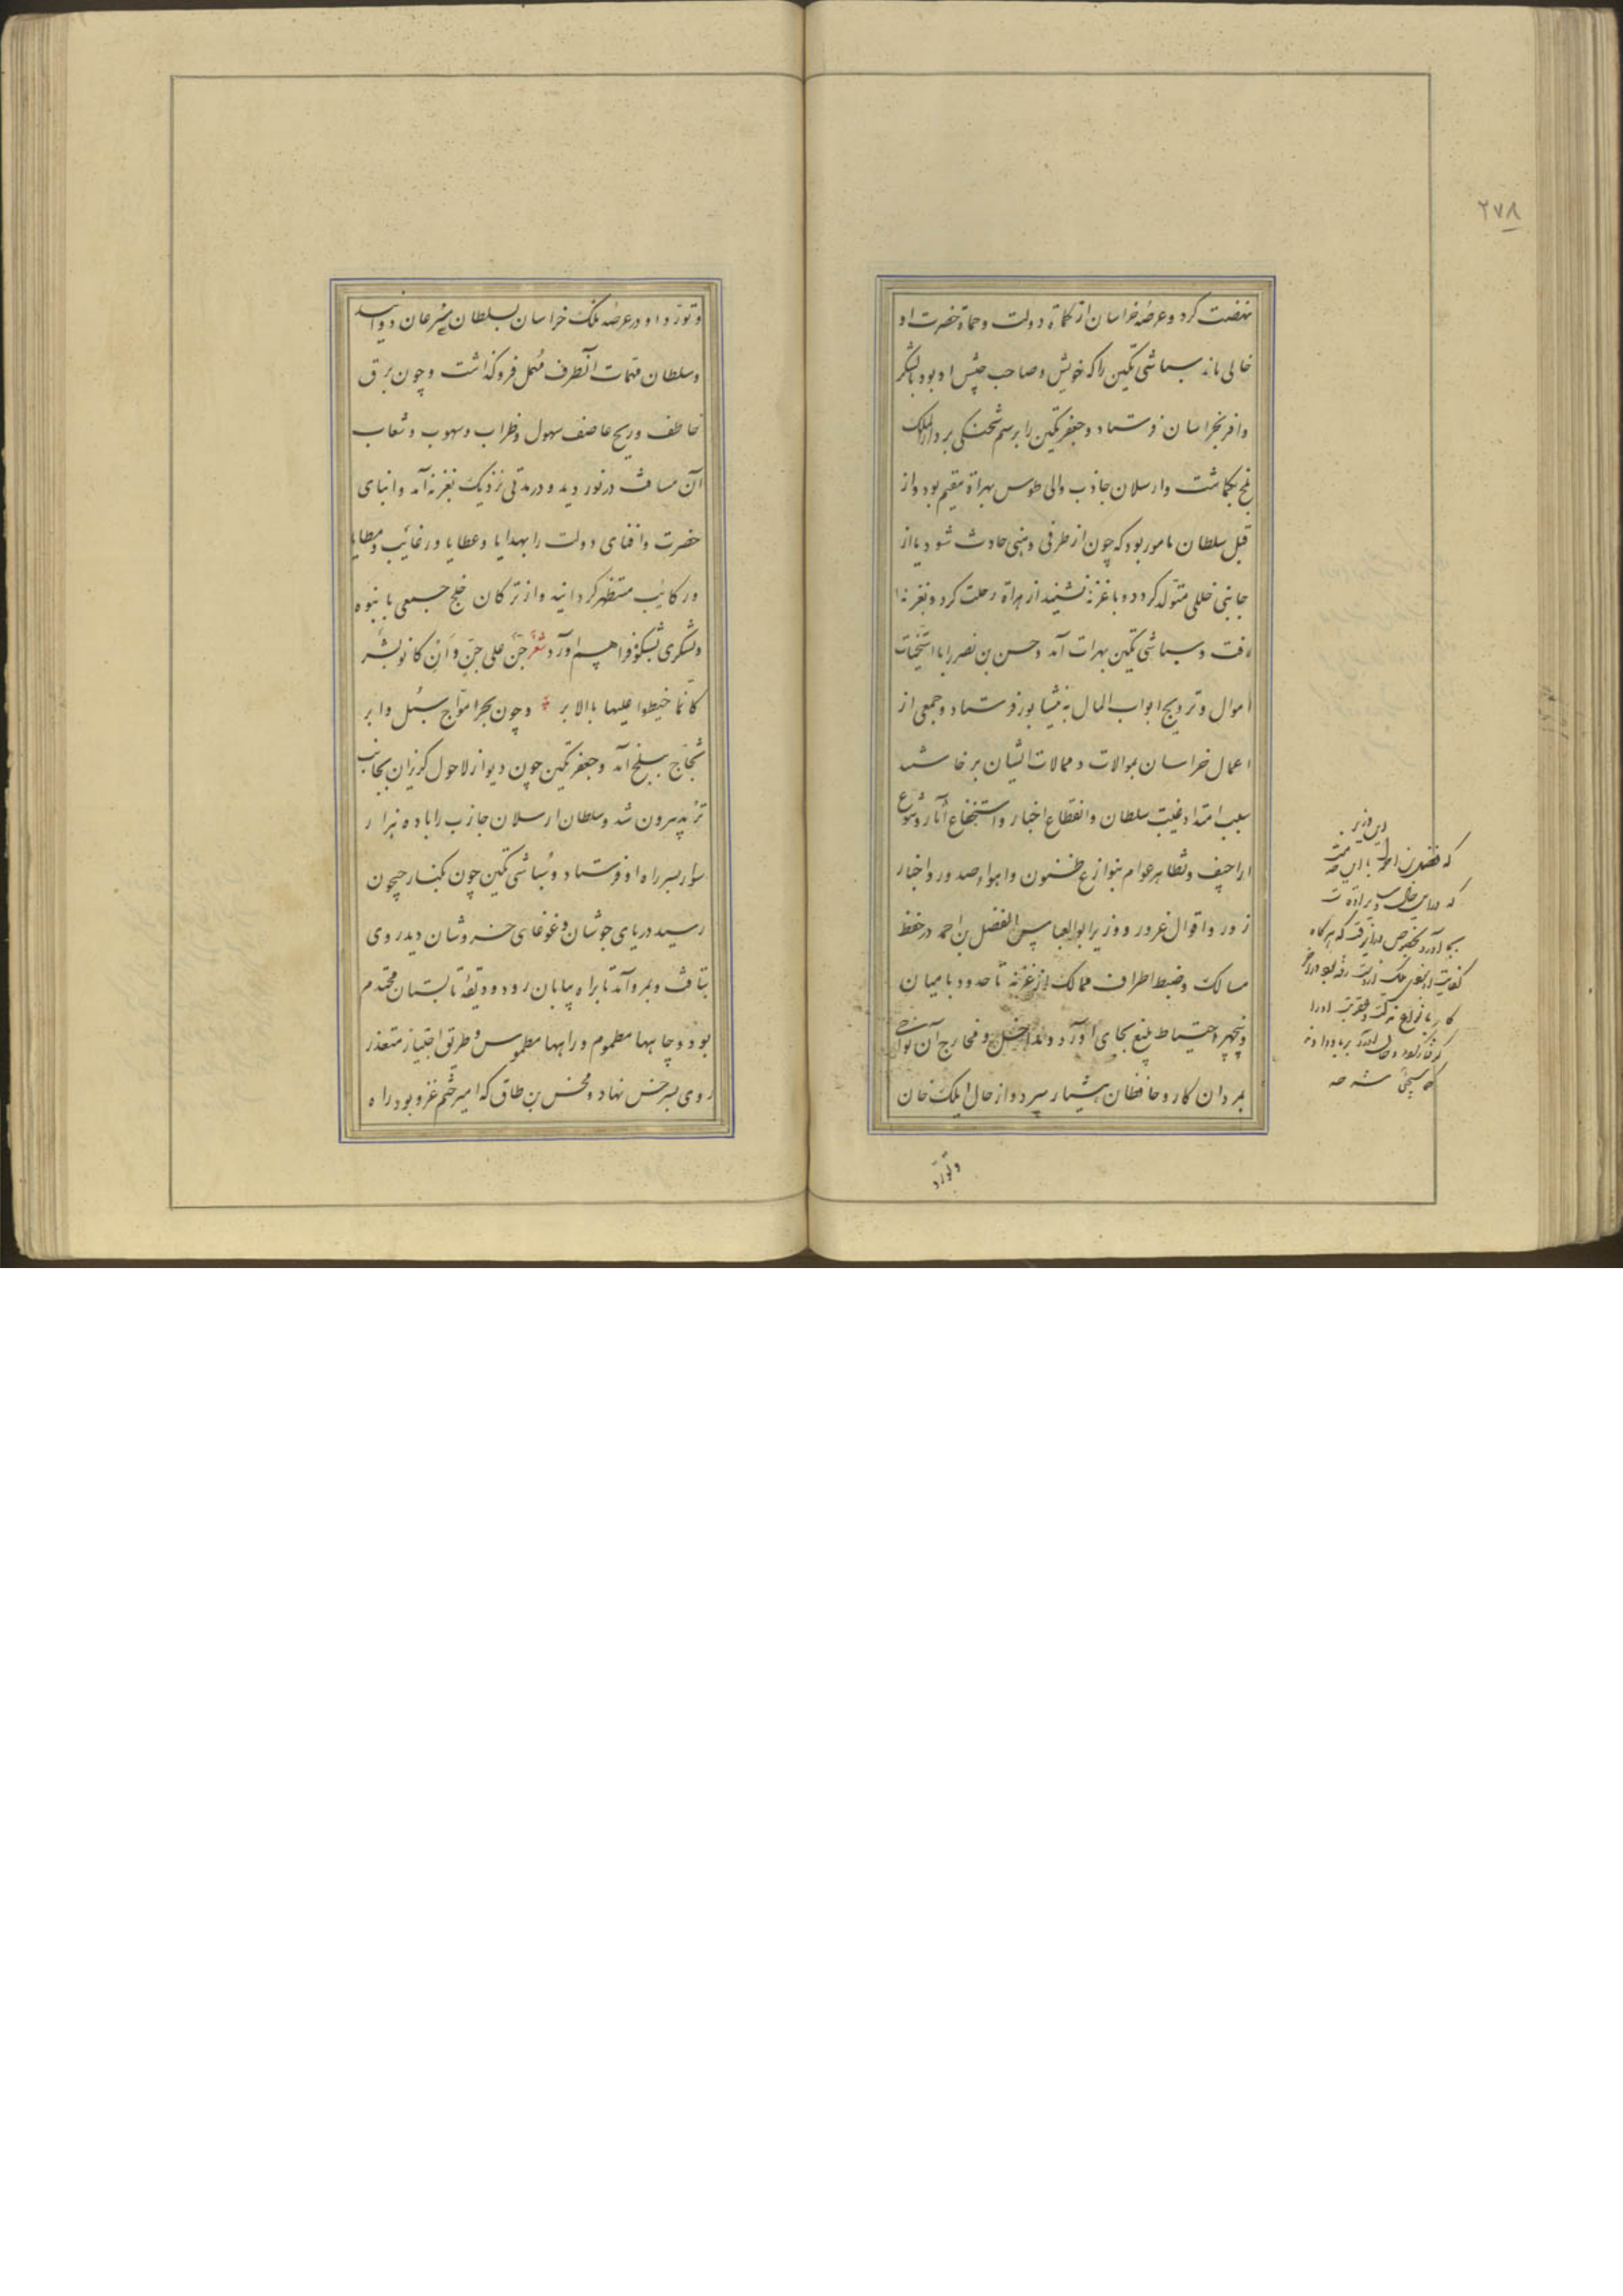 ۲۷۸
نهضت کرد و عرصهٔ خراسان از کماة دولت و حماة حضرت او
خالی ماند سباشی تکین را که خویش و صاحب جیش او بود با لشکر
وافر بخراسان فرستاد و جعفر تکین را برسم شحنکی بر دارالملک
بلخ بکماشت و ارسلان جاذب والی طوس بهراة مقیم بود و از
قبل سلطان مامور بود که چون از طرفی وهنی حادث شود یا از
جانبی خللی متولد کردد و باغزنه نشیند از هراة رحلت کرد و بغزنه
رفت و سباشی تکین بهرات آمد و حسن بن نصر را با استخثات
اموال و ترویج ابواب المال به نیشابور فرستاد و جمعی از
اعمال خراسان بموالات و ممالات ایشان برخاستند
بسبب امتداد غیبت سلطان و انقطاع اخبار و استخفاء آثار و شیوع
اراجیف و تظاهر عوام بنوازع ظنون و اهواء صدور و اخبار
زور و اقوال غرور و وزیر ابوالعباس الفضل بن احمد در حفظ
مسالک و ضبط اطراف ممالک از غزنه تا حدود بامیان
و پنجهیر احتیاط بلیغ بجای آورد و مداخل و مخارج آن نواحی
بمردان کار و حافظان هشیار سپرد و از حال ایلک خان
وتورد
این وزیر
که فضل بن احمد با این
وتورد او در عرصه ملک خراسان بسلطان مسرعان دوانید
و سلطان مهمات آنطرف مهمل فروکذاشت و چون برق
خاطف و ریح عاصف سهول و ظراب و سهوب و شعاب
آن مسافت درنوردید و در مدتی نزدیک بغزنه آمد و انبای
حضرت و افنای دولت را بهدایا و عطایا و رغائب و مطایا
و رکائب مستظهر کردانید و از ترکان خلج جمعی بانبوه
و لشکری بشکوه فراهم آورد شعر جن علی جن و ان کانو بشر
کانما خیطوا علیها بالابر و چون بحر امواج سیل و ابر
ثجاج ببلخ آمد و جعفر تکین چون دیو از لاحول کریزان بجانب
ترمد بیرون شد و سلطان ارسلان جازب را با ده هزار
سوار بسر راه او فرستاد و سباشی تکین چون بکنار جیحون
رسید دریای جوشان و غوغای خروشان دید روی
بتافت و بمرو آمد تا براه بیابان رود و وقت تابستان محتدم
بود و چاهها مطموم و راهها مطموس و طریق اجتیاز متعذر
روی بسرخس نهاد و محسن بن طاق که امیر حشم غز و بود راه